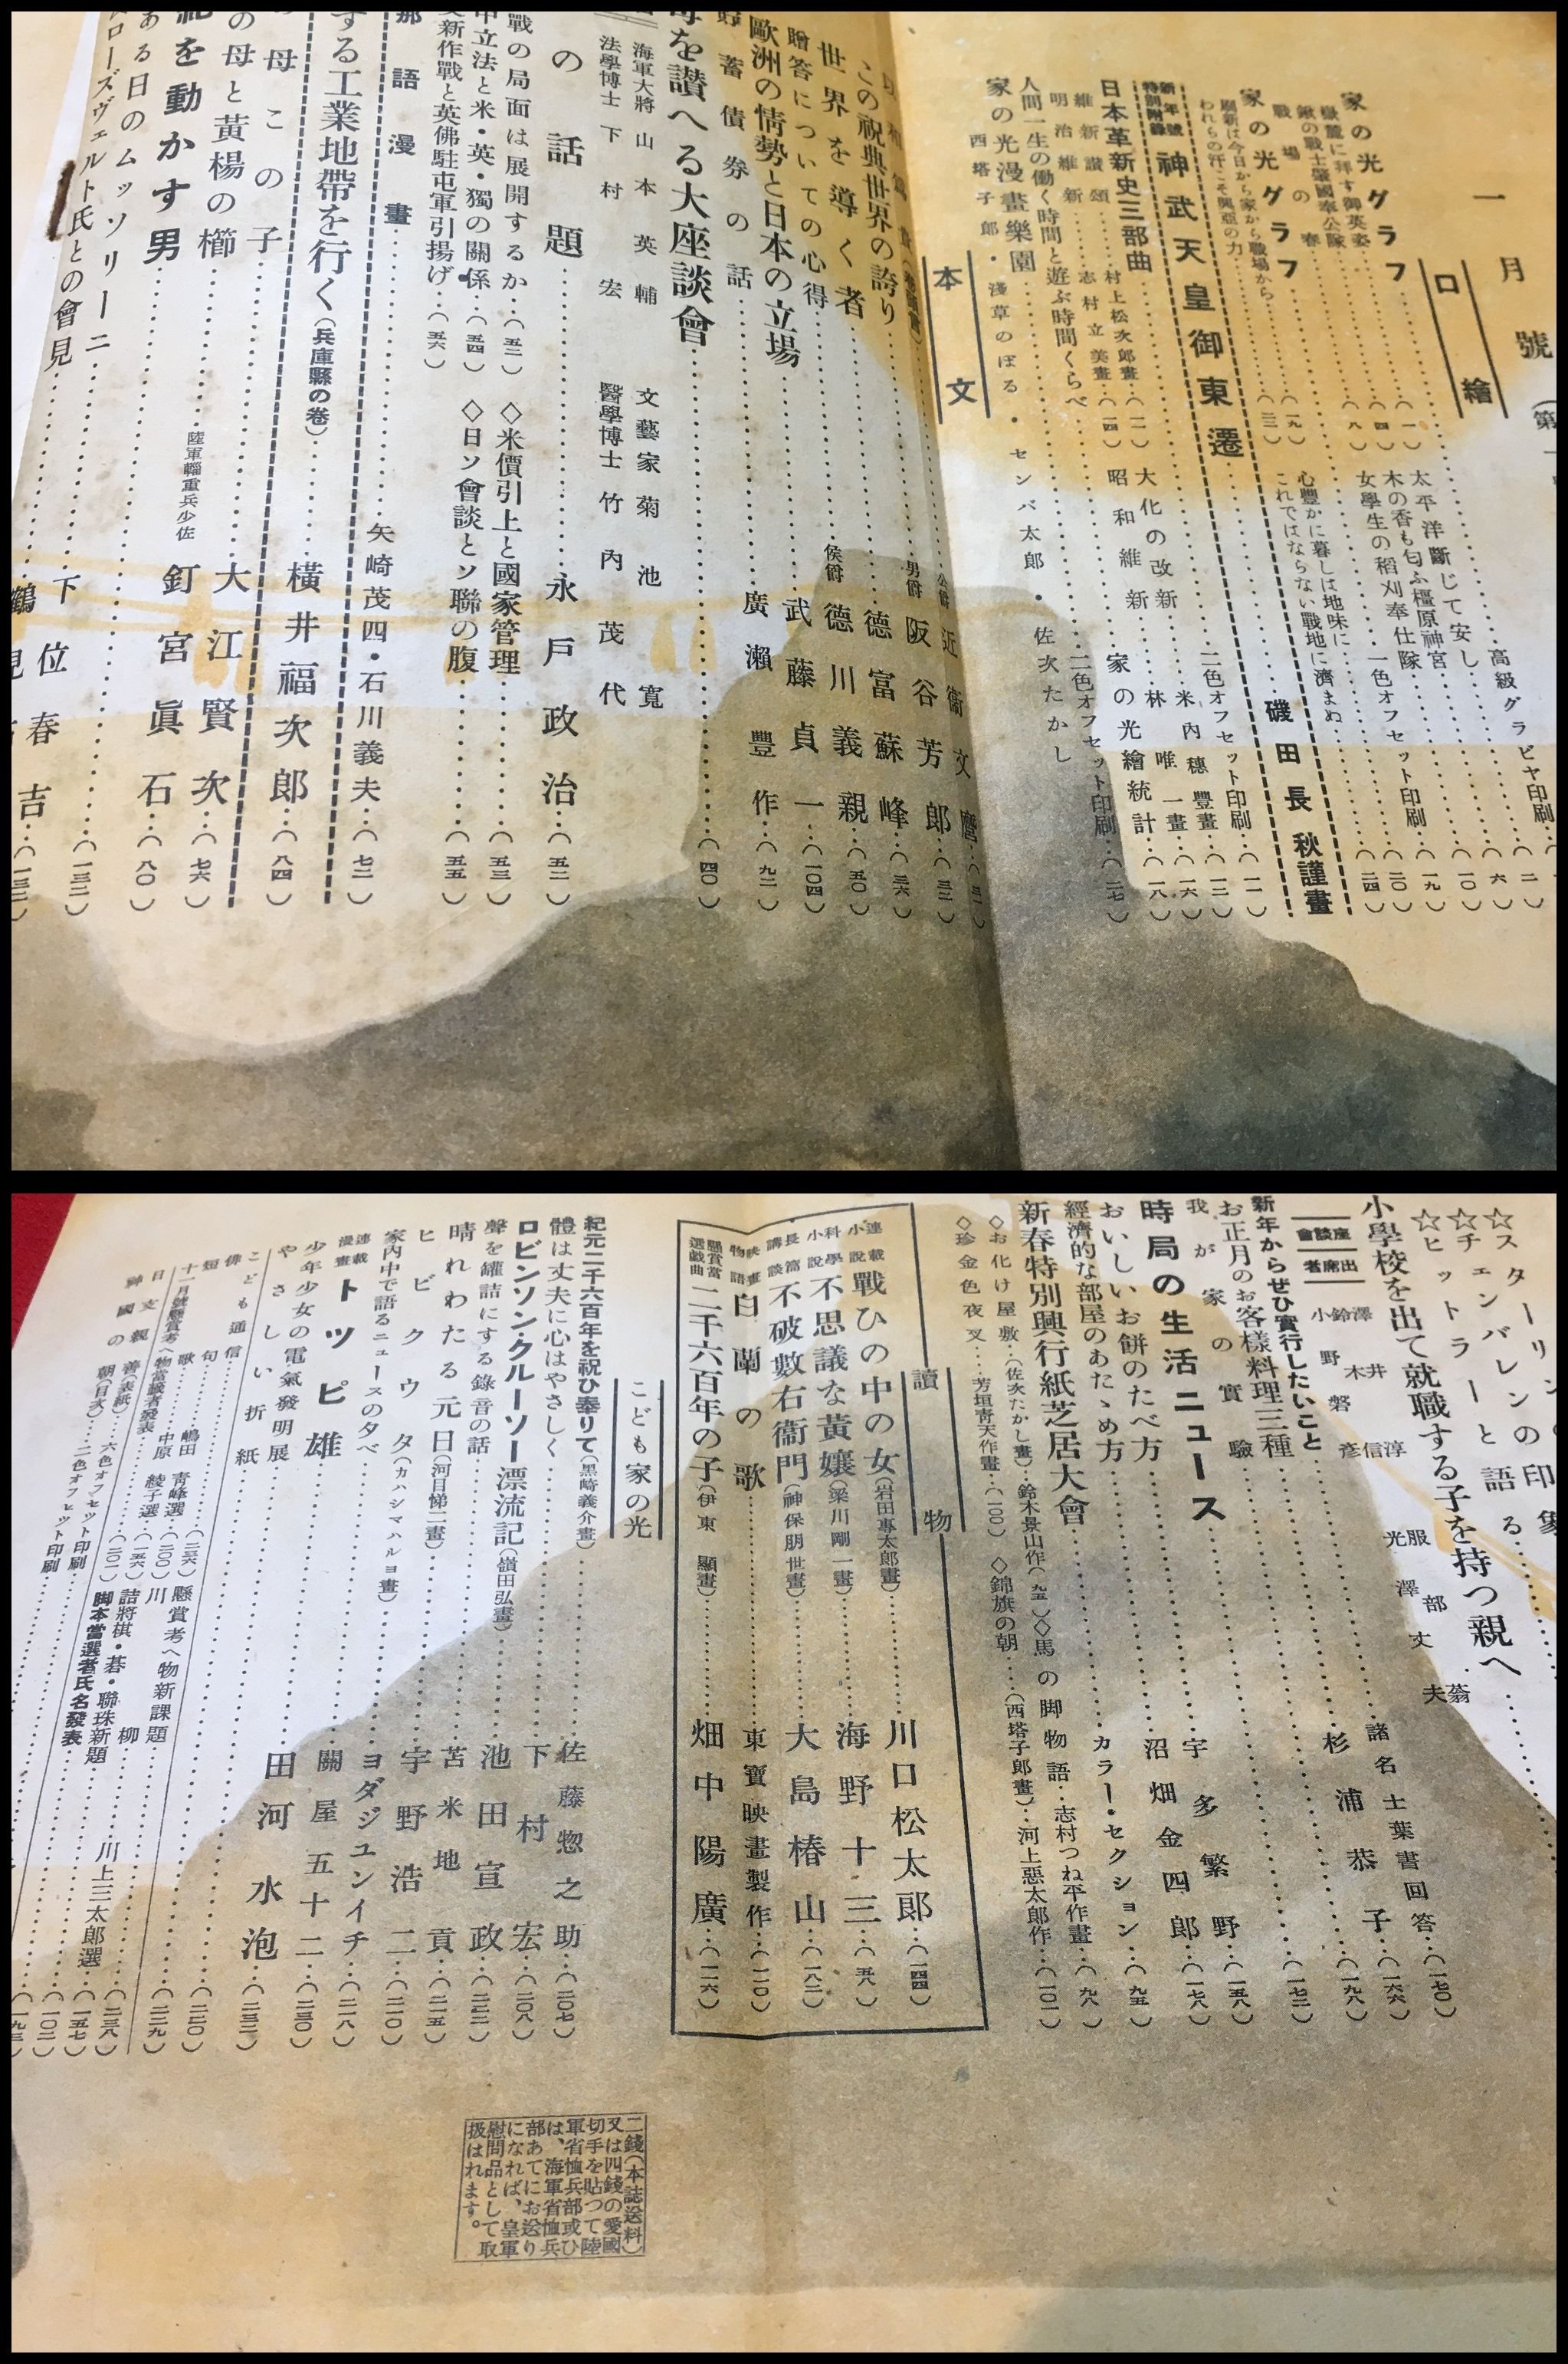 一月號
口繪
高級グラビヤ印刷…(二)
家の光グラフ…(一)
太平洋斷じて安し…(一〇)
木の香も匂ふ橿原神宮…(一九)
女學生の稻刈奉仕隊…一色オフセット印刷…(二〇)
鍬の戰士肇國奉公隊…(八)
戰場の春…(一九)
心豐かに暮しは地味に
これではならない戰地に濟まぬ
家の光グラフ
われらの汗こそ興亞の力
新年號特別附録
神武天皇御東遷…磯田長秋謹畫
二色オフセット印刷…(一一)
日本革新史三部曲…村上松次郎畫…(一一)
大化の改新…米內穗豐畫…(一二)
維新讃頌
明治維新…志村立美畫…(一四)
昭和維新…林唯一畫…(一六)
人間一生の働く時間と遊ぶ時間くらべ…家の光繪統計…(一八)
家の光漫畫樂園…二色オフセット印刷…(二七)
西塔子郎・淺草のぼる・センバ太郎・佐次たかし
本文
公爵 近衞文麿
この祝典世界の誇り…男爵 阪谷芳郎…(三二)
世界を導く者…德富蘇峰…(三六)
贈答についての心得…侯爵 德川義親…(五〇)
歐洲の情勢と日本の立場…武藤貞一…(一〇四)
貯蓄債券の話…廣瀨豐作…(九二)
を讃へる大座談會…(四〇)
海軍大將 山本英輔
文藝家 菊池寬
法學博士 下村宏
醫學博士 竹內茂代
の話題…永戶政治…(五二)
戰の局面は展開するか…(五二)
◇米價引上と國家管理…(五三)
中立法と米・英・獨の關係…(五四)
◇日ソ會談とソ聯の腹…(五五)
新作戰と英佛駐屯軍引揚げ…(五六)
語漫畫…矢崎茂四・石川義夫…(七二)
する工業地帶を行く(兵庫縣の卷)…橫井福次郎…(八四)
母この子
の母と黃楊の櫛…大江賢次…(七六)
を動かす男…陸軍輜重兵少佐 釘宮眞石…(八〇)
ある日のムッソリーニ…下位春吉…(一三二)
ローズヴェルト氏との會見
☆スターリンの印象
☆チェンバレンと語る
☆ヒットラー
小學校を出て就職する子を持つ親へ…諸名士葉書回答…(一七〇)
座談會
出席者
澤井淳
鈴木信
小野磐彥
服部丈夫
新年からぜひ實行したいこと
お正月のお客樣料理三種
杉浦恭子
我が家の實驗
時局の生活ニュース
宇多繁野…(一五八)
おいしいお餅のたべ方…沼畑金四郎…(一七八)
經濟的な部屋のあたゝめ方…カラー・セクション…(九五)
新春特別興行紙芝居大會
鈴木景山作(九五)◇馬の脚物語…志村つね平作畫…(九八)
◇お化け屋敷…(佐次たかし畫)
◇錦旗の朝…(西塔子郎畫)…河上惡太郎作…(一〇二)
◇珍金色夜叉…芳垣靑天作畫…(一〇〇)
讀物
連載小說 戰ひの中の女(岩田專太郎畫)…川口松太郎…(一四四)
科學小說 不思議な黃孃(梁川剛一畫)…海野十三…(五八)
長篇講談 不破數右衞門(神保朋世畫)…大島椿山…(一八二)
映畫物語 白蘭の歌…東寶映畫製作…(一一〇)
懸賞當選戲曲 二千六百年の子(伊東顯畫)…畑中陽廣…(一二六)
こども家の光
紀元二千六百年を祝ひ奉りて(黑崎義介畫)…佐藤惣之助…(二〇七)
體は丈夫に心はやさしく…下村宏…(二〇八)
ロビンソン・クルーソー漂流記(嶺田弘畫)…池田宣政…(二二二)
聲を罐詰にする錄音の話…苫米地貢…(二一五)
晴れわたる元日(河目悌二畫)…宇野浩二…(二一〇)
ヒビクウタ(カハシマハルヨ畫)…ヨダジュンイチ…(二一八)
家內中で語るニュースの夕べ…關屋五十二…(二三〇)
連載漫畫 トツピ雄…田河水泡…(二三二)
少年少女の電氣發明展…(二二〇)
やさしい折紙…(二二九)
こども通信…(二三六)
俳句…嶋田靑峰選…(二〇〇)
短歌…中原綾子選…(一五六)
川柳…川上三太郎選…(二三八)
十一月號懸賞考へ物當籤者發表…(二〇一)
懸賞考へ物新課題
詰將棋・碁・聯珠新題…(一五七)
脚本當選者氏名發表…(一〇二)
日支親善(表紙)…六色オフセット印刷
神國の朝(目次)…二色オフセット印刷
二錢(本誌送料)
又は四錢の愛國
切手を貼つて陸
軍省恤兵部或ひ
は、海軍省恤兵
部あてにお送り
になれば、皇軍
慰問品として取
扱はれます。